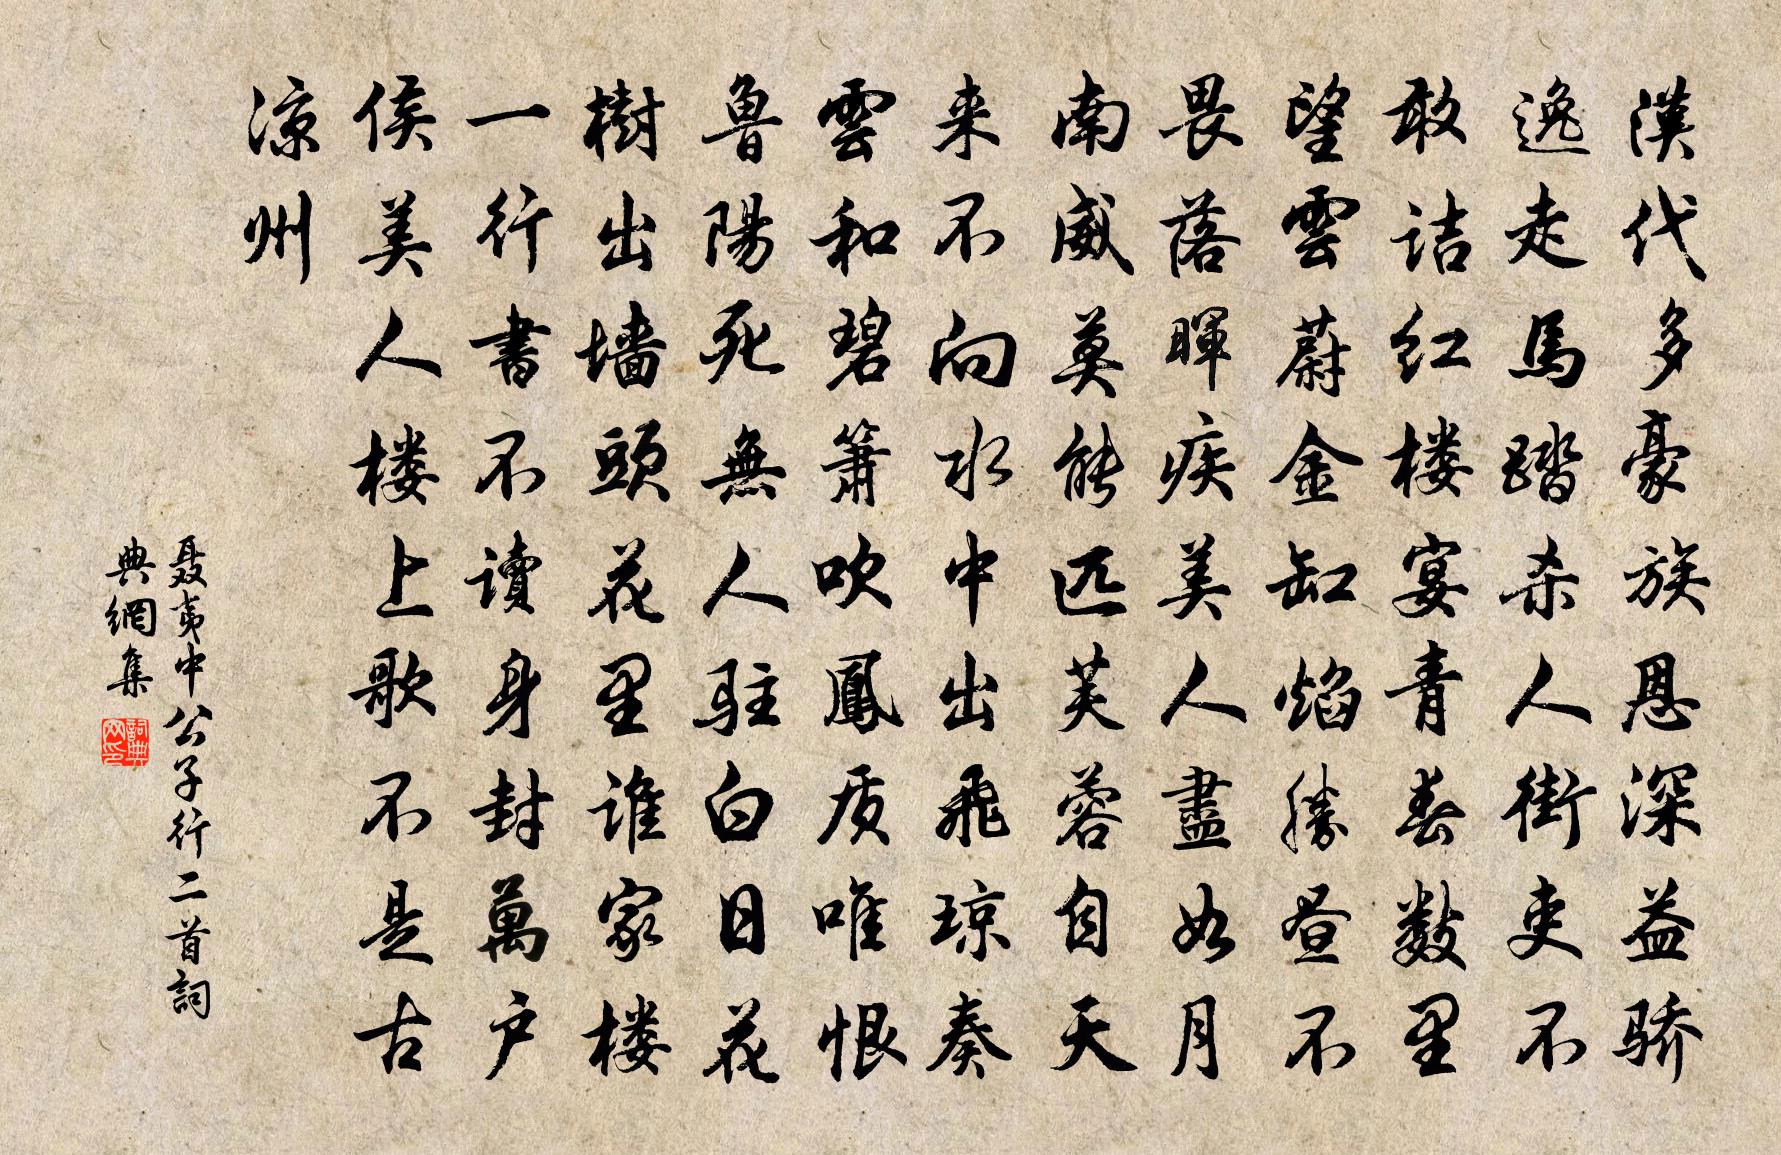 漢代多豪族恩深益骄
逸走馬踏杀人街吏不
敢诘红楼宴青春数里
望雲蔚金缸焰勝昼不
畏落暉疾美人盡如月
南威莫能匹芙蓉自天
来不向水中出飛琼奏
雲和碧箫吹鳳质唯恨
魯陽死無人驻白日花
樹出墙頭花里谁家楼
一行書不讀身封萬户
侯美人楼上歌不是古
凉州
聂夷中公子行二首詞
典網集
詞典